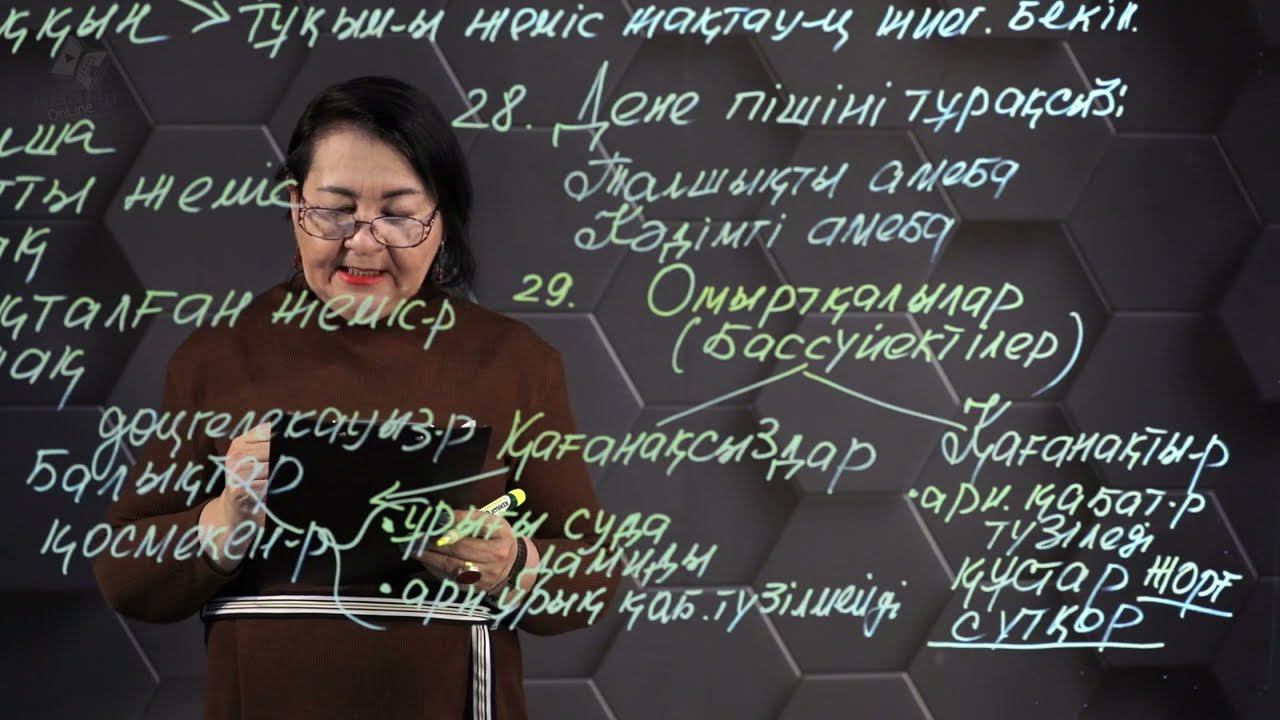 ққын > тұқым-ы жеміс жақтау-ң жиег. бекіп.
ша
тты жеміс
ақ
қталған жеміс-р
нақ
28. Дене пішіні тұрақсыз:
Талшықты амеба
Кәдімгі амеба
29. Омыртқалылар
(Бассүйектілер)
Қағанақсыздар
дөңгелекауыз-р
балықтар
қосмекен-р
• ұрығы суда
дамиды
• арн ұрық қаб. түзілмейді
Қағанақты-р
• арн. қабат-р
түзіледі
құстар жорғ
сүтқор
OnLine